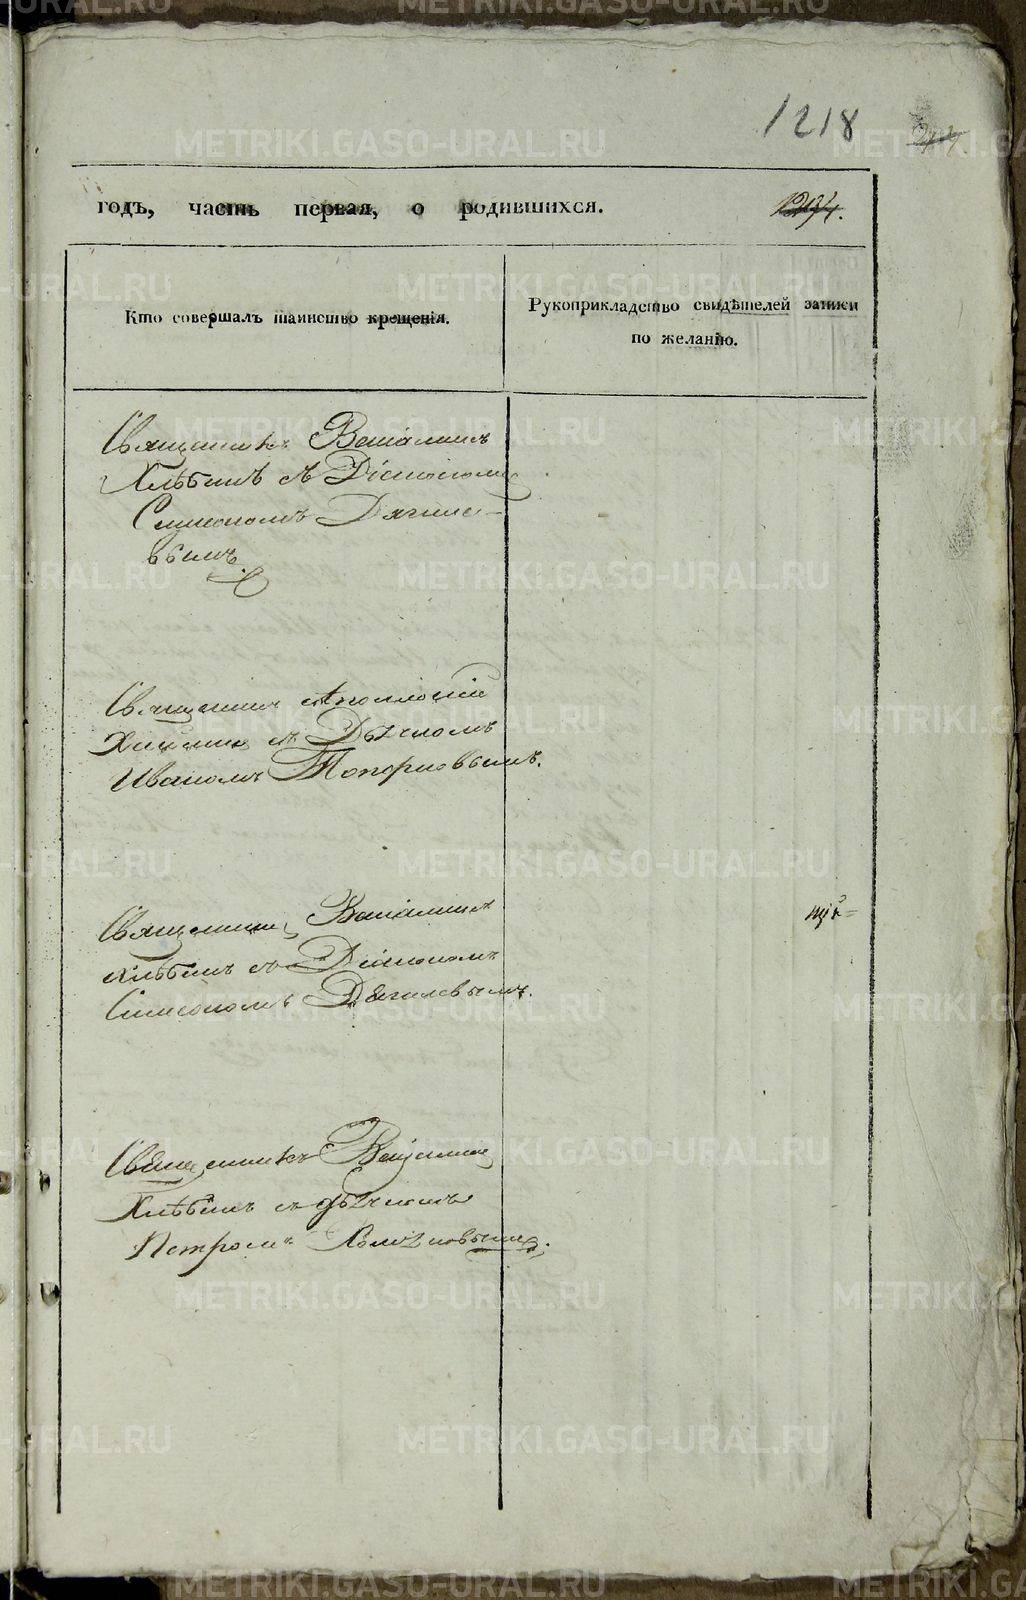 1218
годъ, часть первая, о родившихся.
Кто совершалъ таинство крещенія.
Рукоприкладство свидѣтелей записи
по желанію.
Священникъ Веніаминъ
Хлѣбинъ съ Діакономъ
Симеономъ Дягиле-
вымъ.
Священникъ Аполлосъ
съ Дьячкомъ
Иваномъ Топорковымъ.
Священникъ Веніаминъ
Хлѣбинъ съ Діакономъ
Симеономъ Дягилевымъ.
Священникъ Веніаминъ
Хлѣбинъ съ дьячкомъ
Петромъ
METRIKI.GASO-URAL.RU